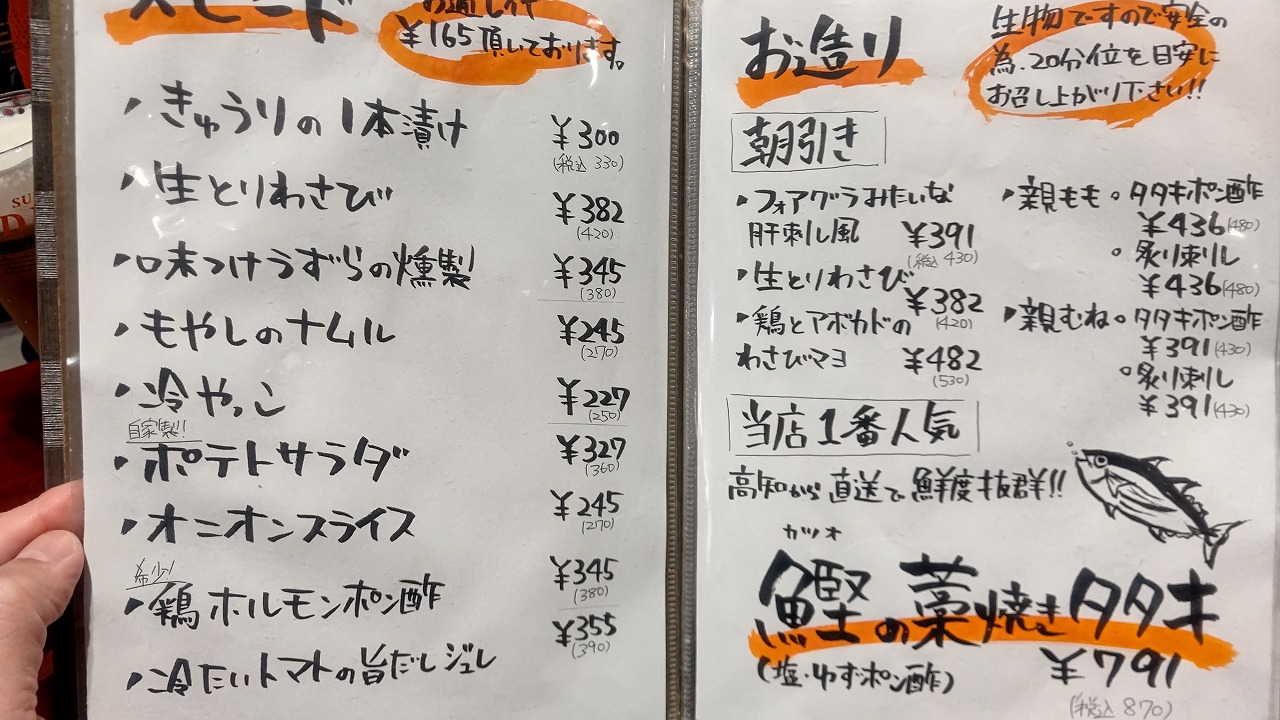 スピード
お通し代
￥165頂いております。
・きゅうりの1本漬け ￥300
(税込 330)
・生とりわさび ￥382
(420)
・味つけうずらの燻製 ￥345
(380)
・もやしのナムル ￥245
(270)
・冷やっこ ￥227
(250)
自家製!!
・ポテトサラダ ￥327
(360)
・オニオンスライス ￥245
(270)
希少!
・鶏ホルモンポン酢 ￥345
(380)
・冷たいトマトの旨だしジュレ ￥355
(390)
お造り
生物ですので安全の
為、20分位を目安に
お召し上がり下さい!!
朝引き
・フォアグラみたいな
肝刺し風 ￥391
(税込 430)
・生とりわさび ￥382
(420)
・鶏とアボカドの
わさびマヨ ￥482
(530)
・親もも。タタキポン酢
￥436(480)
。炙り刺し
￥436(480)
・親むね。タタキポン酢
￥391(430)
。炙り刺し
￥391(430)
当店1番人気
高知から直送で鮮度抜群!!
カツオ
鰹の藁焼きタタキ
(塩・ゆずポン酢) ￥791
(税込 870)